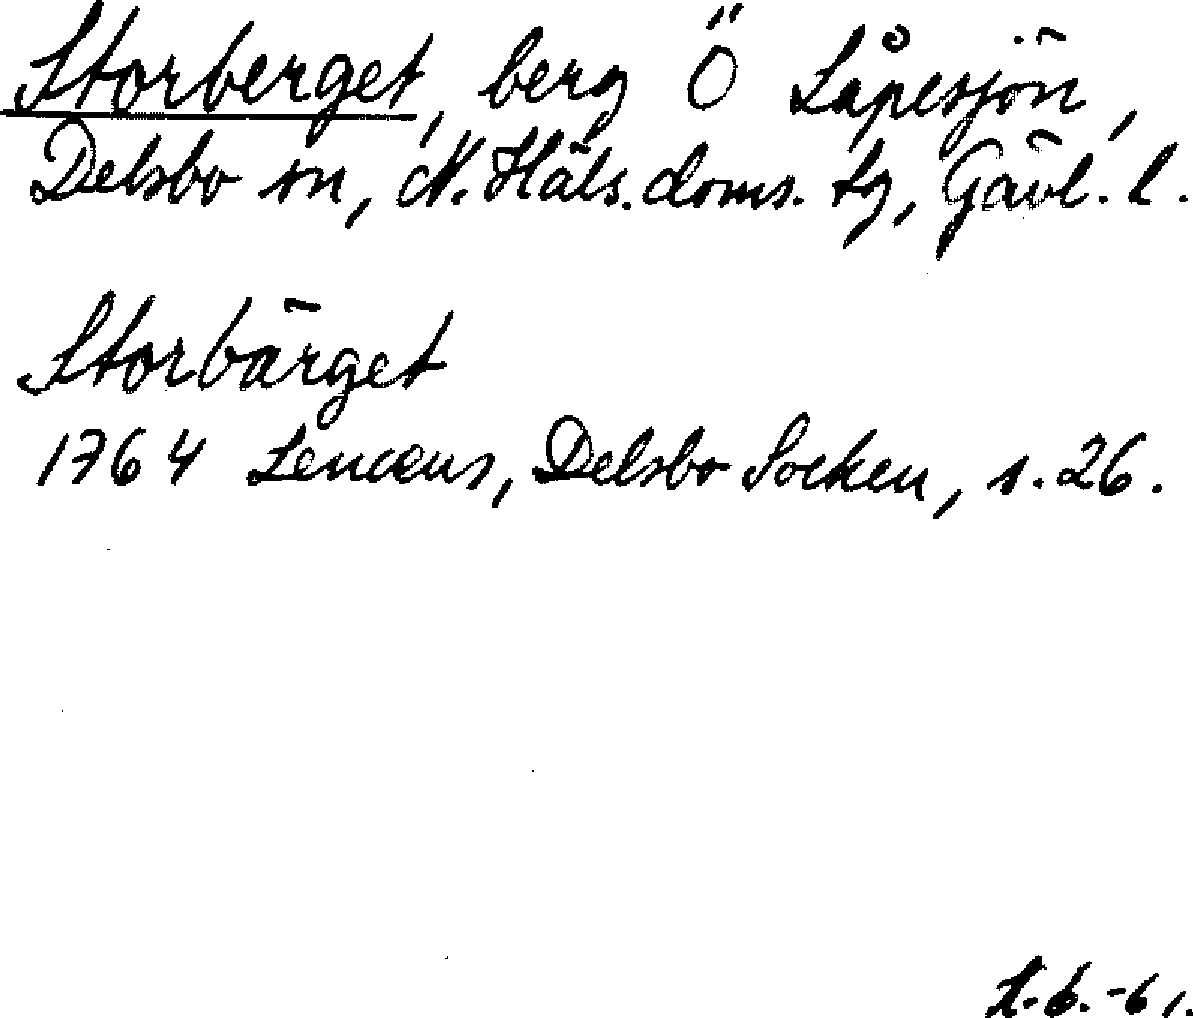 Storberget, berg Ö Låpesjön,
Delsbo sn, N. Häls. doms. tg, Gävl. l.
Storbärget
1764 Lenæus, Delsbo Socken, s. 26.